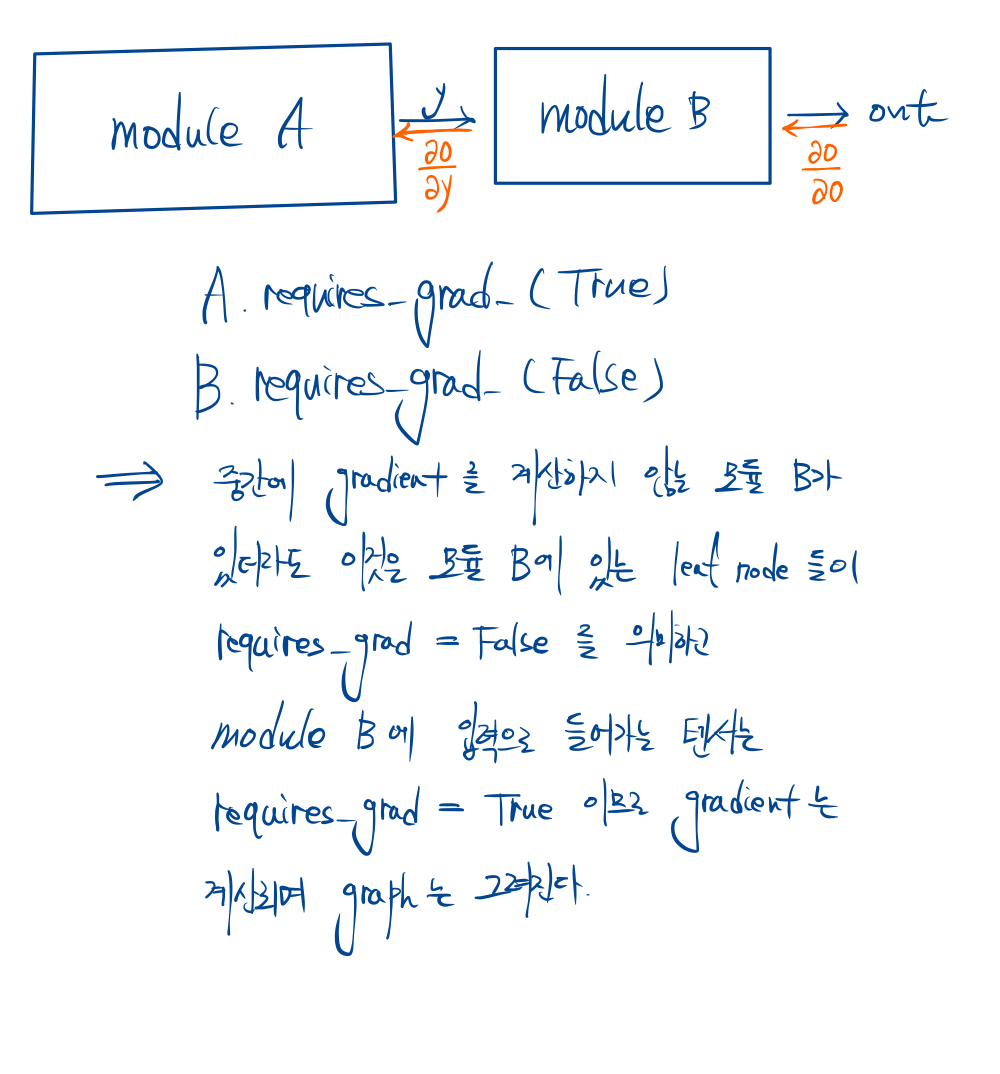 module A
y
∂o
∂y
module B
out
∂o
∂o
A. requires_grad_(True)
B. requires_grad_(False)
⇒ 중간에 gradient를 계산하지 않는 모듈 B가
있더라도 이것은 모듈 B에 있는 leaf node 들이
requires_grad = False 를 의미하고
module B에 입력으로 들어가는 텐서는
requires_grad = True 이므로 gradient는
계산되며 graph는 그려진다.